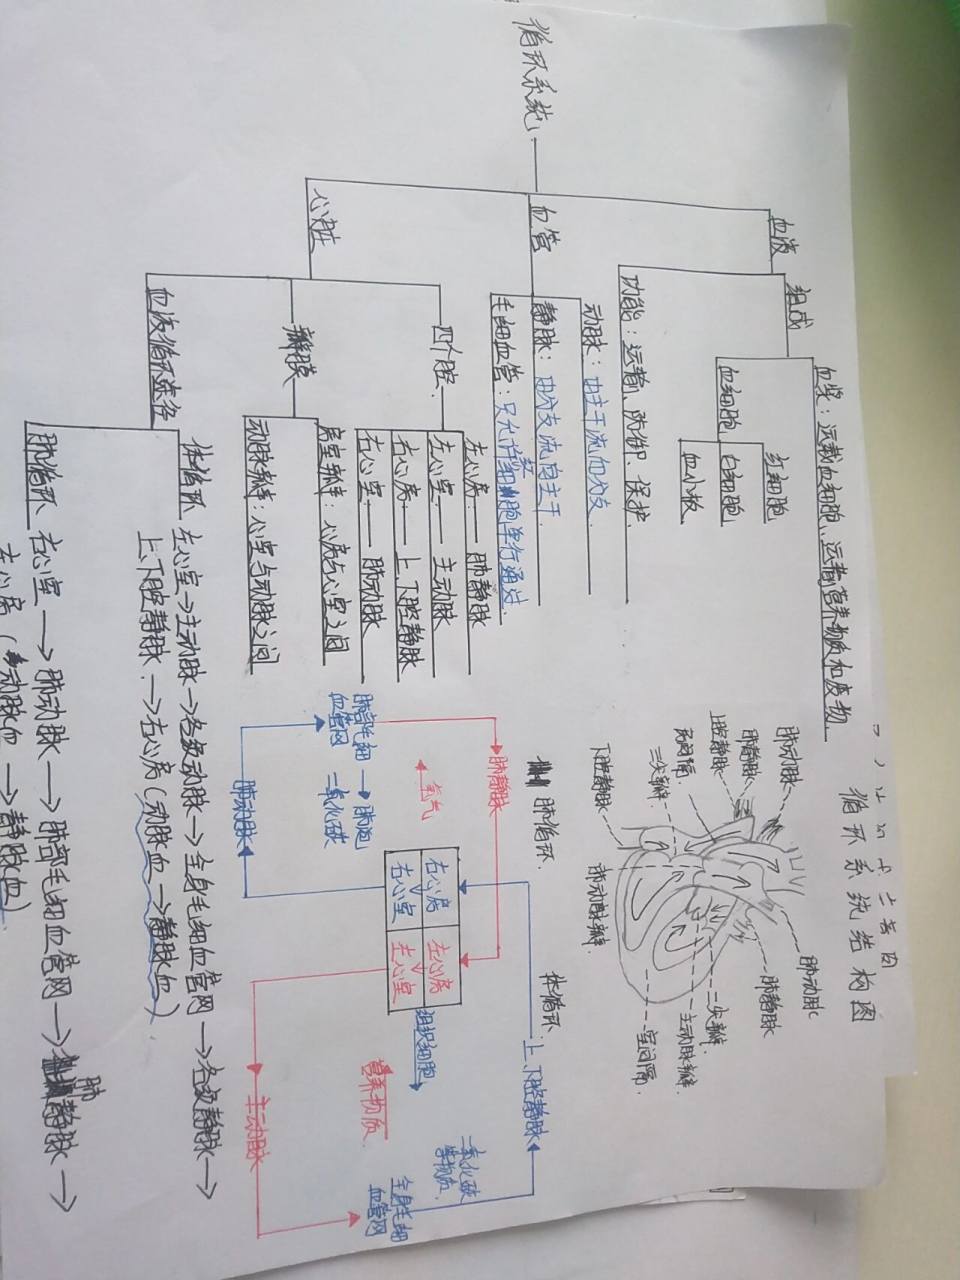 循环系统结构图
循环系统
血液
组成
血浆：运载血细胞、运输营养物质和废物
血细胞
红细胞
白细胞
血小板
功能：运输、防御、保护
血管
动脉：由主干流向分支
静脉：由分支流向主干
毛细血管：只允许红细胞单行通过
心脏
四个腔
左心房——肺静脉
左心室——主动脉
右心房——上、下腔静脉
右心室——肺动脉
瓣膜
房室瓣：心房与心室之间
动脉瓣：心室与动脉之间
血液循环途径
体循环 左心室→主动脉→各级动脉→全身毛细血管网→各级静脉→
上、下腔静脉→右心房（动脉血→静脉血）
肺循环 右心室→肺动脉→肺部毛细血管网→肺静脉→
左心房（动脉血→静脉血）
肺动脉
肺静脉
上腔静脉
房间隔
三尖瓣
下腔静脉
肺动脉瓣
肺动脉
肺静脉
二尖瓣
主动脉瓣
室间隔
肺循环
体循环
肺静脉
氧气
肺部毛细
血管网
肺泡
二氧化碳
肺动脉
右心房
左心房
右心室
左心室
上、下腔静脉
组织细胞
营养物质
二氧化碳
等物质
全身毛细
血管网
主动脉